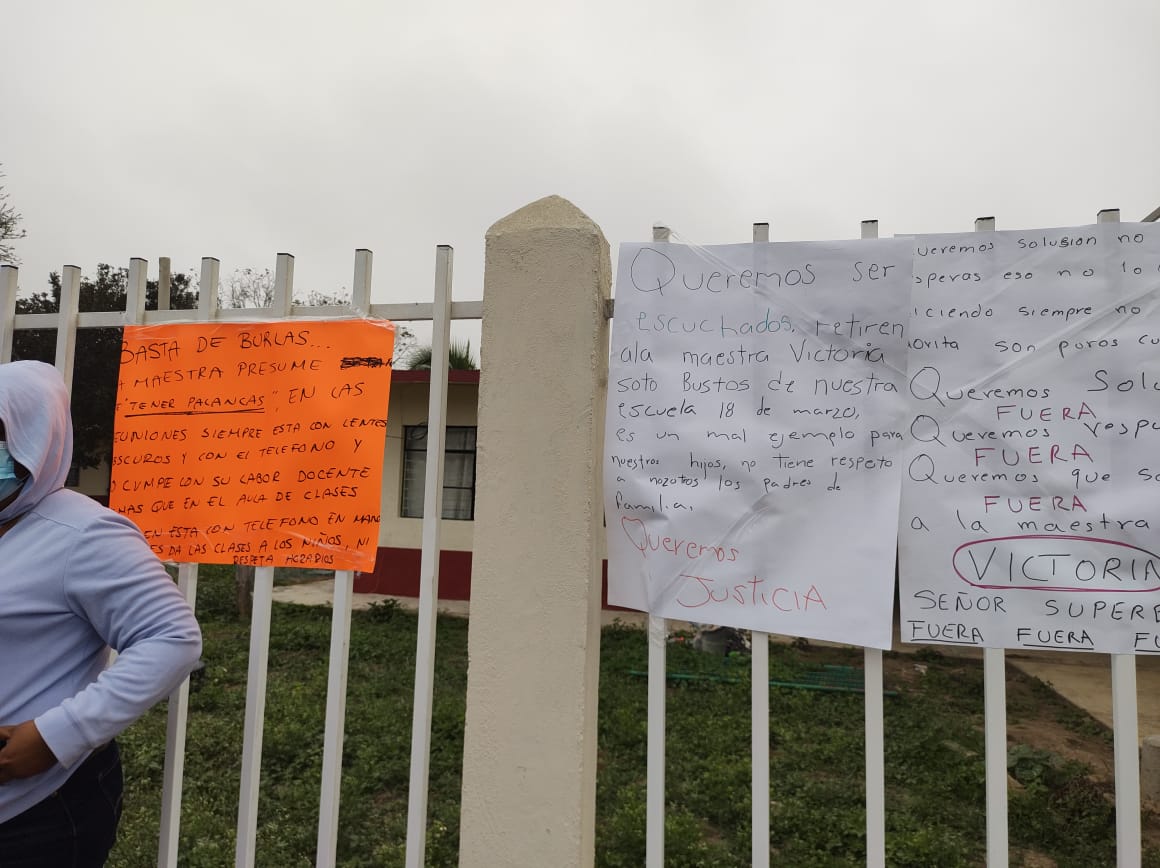 BASTA DE BURLAS...
MAESTRA PRESUME
"TENER PALANCAS", EN LAS
EUNIONES SIEMPRE ESTA CON LENTES
BSCUROS Y CON EL TELEFONO Y
O CUMPE CON SU LABOR DOCENTE
MAS QUE EN EL AULA DE CLASES
EN ESTA CON TELEFONO EN MANO
ES DA LAS CLASES A LOS NIÑOS, NI
RESPETA HORARIOS
Queremos ser
escuchados, retiren
ala maestra Victoria
soto Bustos de nuestra
escuela 18 de marzo,
es un mal ejemplo para
nuestros hijos, no tiene respeto
a nozotros los padres de
familia,
Queremos
Justicia
ueremos solusion no
speras eso no lo
iciendo siempre no
orita son puros cu
Queremos Solu
FUERA
Queremos respu
FUERA
Queremos que sa
FUERA
a la maestra
VICTORIA
SEÑOR SUPERE
FUERA FUERA FU